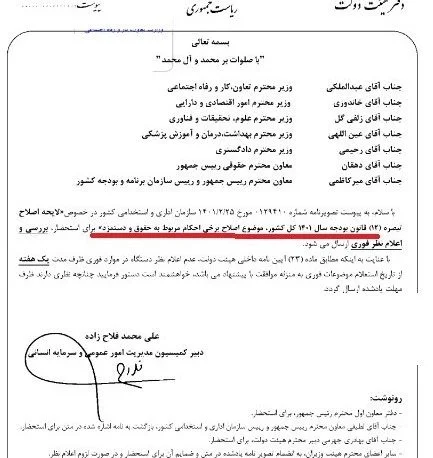 دفتر هیئت دولت
ریاست جمهوری
پیوست
بسمه تعالی
"با صلوات بر محمد و آل محمد"
جناب آقای عبدالملکی وزیر محترم تعاون،کار و رفاه اجتماعی
جناب آقای خاندوزی وزیر محترم امور اقتصادی و دارایی
جناب آقای زلفی گل وزیر محترم علوم، تحقیقات و فناوری
جناب آقای عین اللهی وزیر محترم بهداشت،درمان و آموزش پزشکی
جناب آقای رحیمی وزیر محترم دادگستری
جناب آقای دهقان معاون محترم حقوقی رییس جمهور
جناب آقای میرکاظمی معاون محترم رییس جمهور و رییس سازمان برنامه و بودجه کشور
با سلام، به پیوست تصویرنامه شماره ۰۱۲۹۴۱۰ مورخ ۱۴۰۱/۲/۲۵ سازمان اداری و استخدامی کشور در خصوص"لایحه اصلاح
تبصره (۱۲) قانون بودجه سال ۱۴۰۱ کل کشور، موضوع اصلاح برخی احکام مربوط به حقوق و دستمزد» برای استحضار، بررسی و
اعلام نظر فوری ارسال می شود.
با عنایت به اینکه مطابق ماده (۲۳) آیین نامه داخلی هیئت دولت، عدم اعلام نظر دستگاه در موارد فوری ظرف مدت یک هفته
از تاریخ استعلام موضوعات فوری به منزله موافقت با پیشنهاد می باشد، خواهشمند است دستور فرمایید چنانچه نظری دارند ظرف
مهلت یادشده ارسال گردد.
علی محمد فلاح زاده
دبیر کمیسیون مدیریت امور عمومی و سرمایه انسانی
رونوشت:
- دفتر معاون اول محترم رئیس جمهور، برای استحضار.
- جناب آقای لطیفی معاون محترم رییس جمهور و رییس سازمان اداری و استخدامی کشور، بازگشت به نامه اشاره شده در متن برای استحضار.
- جناب آقای بهادری جهرمی دبیر محترم هیئت دولت، برای استحضار.
- سایر اعضای محترم هیئت وزیران، به انضمام تصویر نامه یادشده در متن و ضمایم آن برای استحضار و در صورت لزوم اعلام نظر.